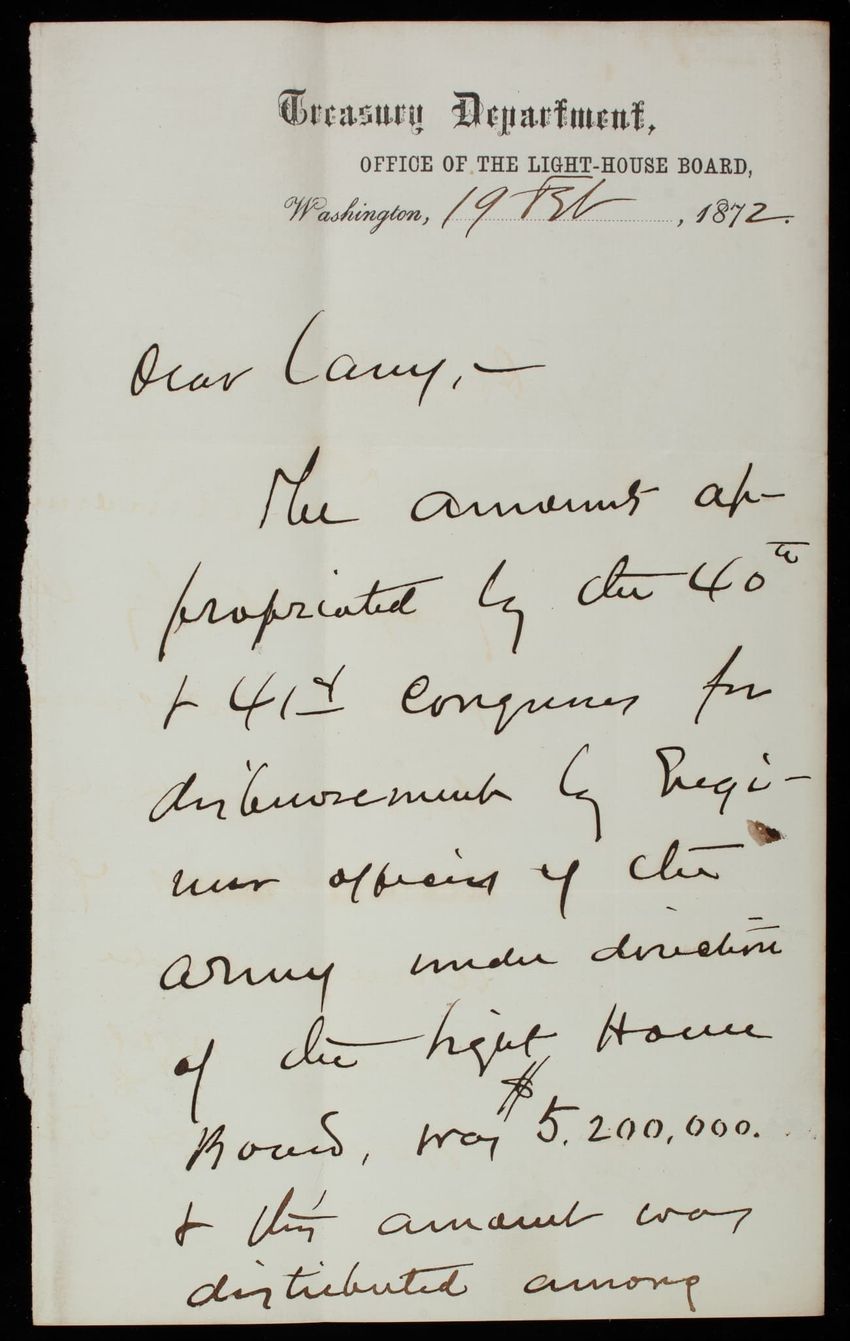 Treasury Department,
OFFICE OF THE LIGHT-HOUSE BOARD,
Washington, 19 Feb, 1872.
Dear Casey, —
The amount ap-
propriated by the 40th
& 41st Congresses for
disbursement by Engi-
neer officers of the
Army under direction
of the Light House
Board, was $5,200,000.
& this amount was
distributed among